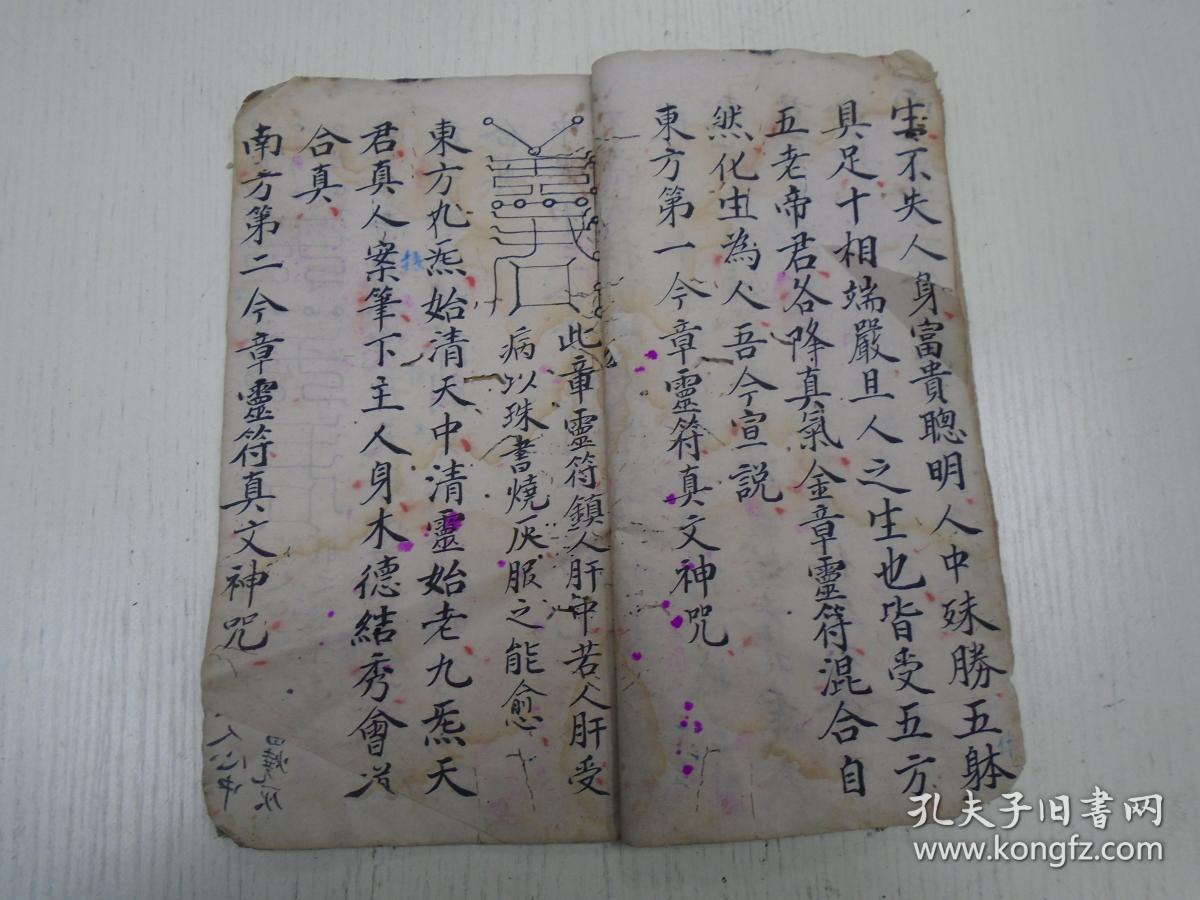 生不失人身富貴聰明人中殊勝五躰
具足十相端嚴且人之生也皆受五方
五老帝君各降真氣金章靈符混合自
然化生為人吾今宣説
東方第一今章靈符真文神咒
此章靈符鎮人肝中若人肝受
病以珠書燒灰服之能愈
東方九炁始清天中清靈始老九炁天
君真人案筆下主人身木德結秀會道
合真
南方第二今章靈符真文神咒
孔夫子旧书网
www.kongfz.com